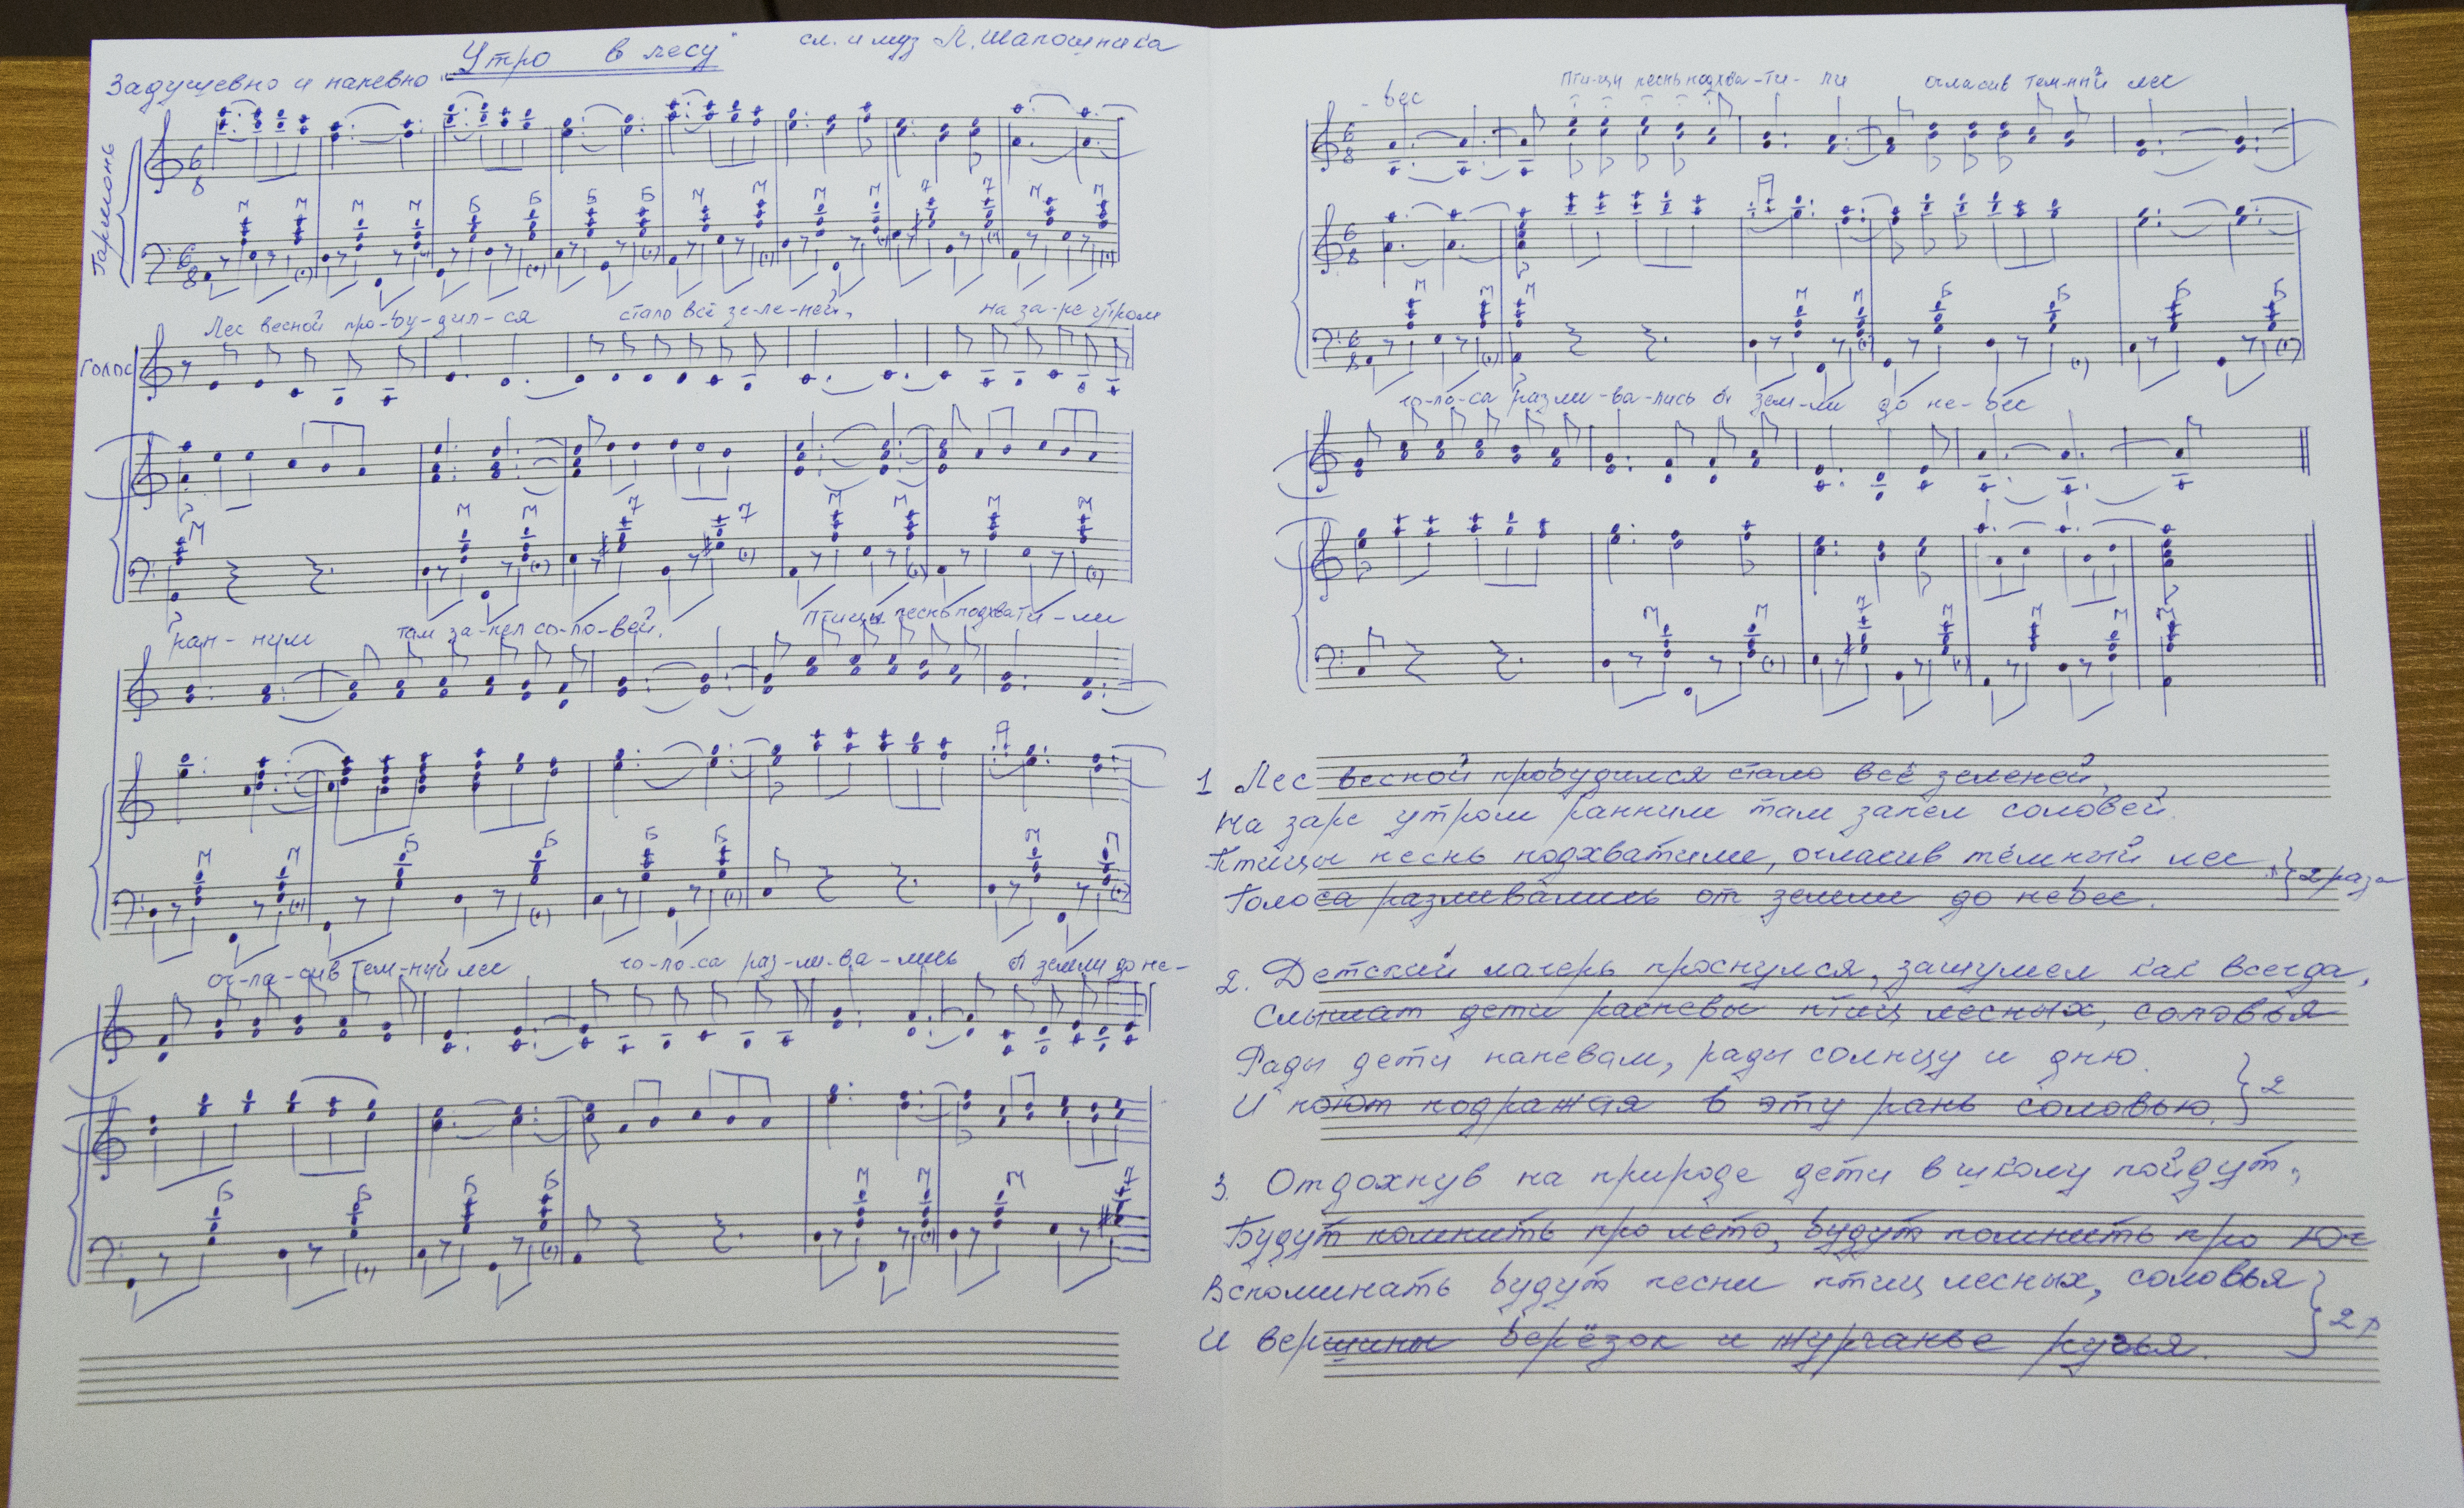 "Утро в лесу"
сл. и муз Л. Шапошника
Задушевно и напевно
Гармонь
6 8
М М М М Б Б Б Б М М М М 7 7 М М
6 8
Лес весной про-бу-дил-ся стало всё зе-ле-ней, на за-ре утром
Голос
М М М 7 7 М М М М
ран-ним там за-пел со-ло-вей. Птицы песнь подхвати-ли
М М Б Б Б Б М М
ог-ла-сив тем-ный лес го-ло-са раз-ли-ва-лись от земли до не-
Б Б Б Б М М М 7
-бес Пти-цы песнь подхва-ти-ли огласив тем-ный лес
6 8
6 8
М М М М М Б Б Б Б
6 8
го-ло-са разли-ва-лись от зем-ли до не-бес
М М 7 М М М М
1 Лес весной пробудился стало всё зеленей,
На заре утром ранним там запел соловей.
Птицы песнь подхватили, огласив тёмный лес } 2 раза
Голоса разливались от земли до небес.
2. Детский лагерь проснулся, зашумел как всегда,
Слышат дети распевы птиц лесных, соловья
Рады дети напевам, рады солнцу и дню. } 2
И поют подражая в эту рань соловью.
3. Отдохнув на природе дети в школу пойдут,
Будут помнить про лето, будут помнить про Юг
Вспоминать будут песни птиц лесных, соловья } 2 р
И вершины берёзок и журчанье ручья.